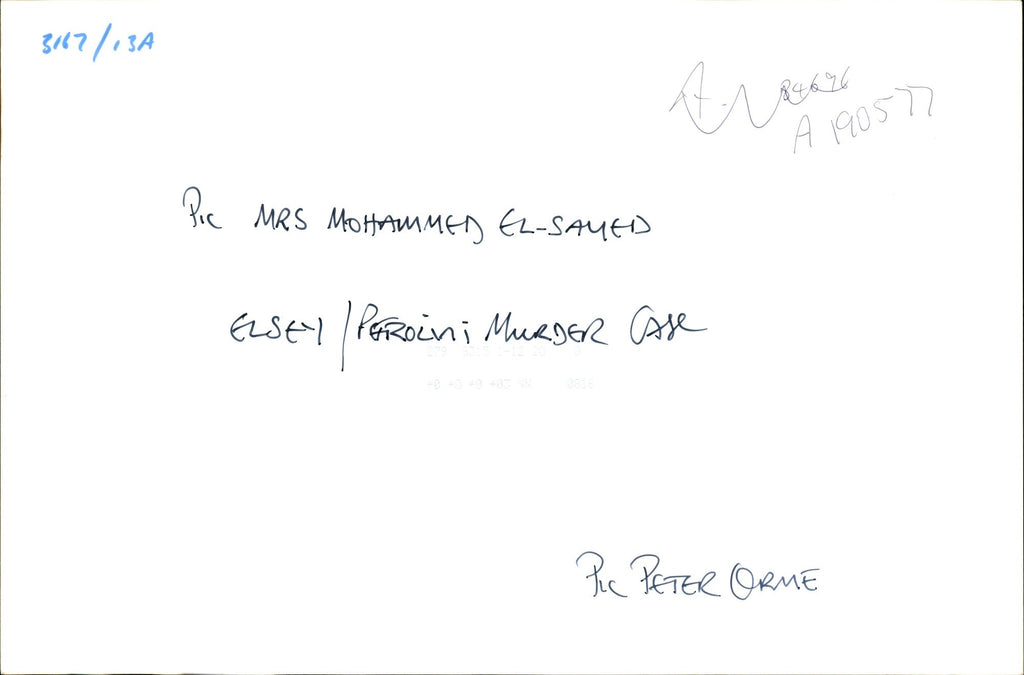 3167/13A
A190577
Pic MRS MOHAMMED EL-SAYED
ELSEY/PEROLINI MURDER CASE
Pic PETER ORME